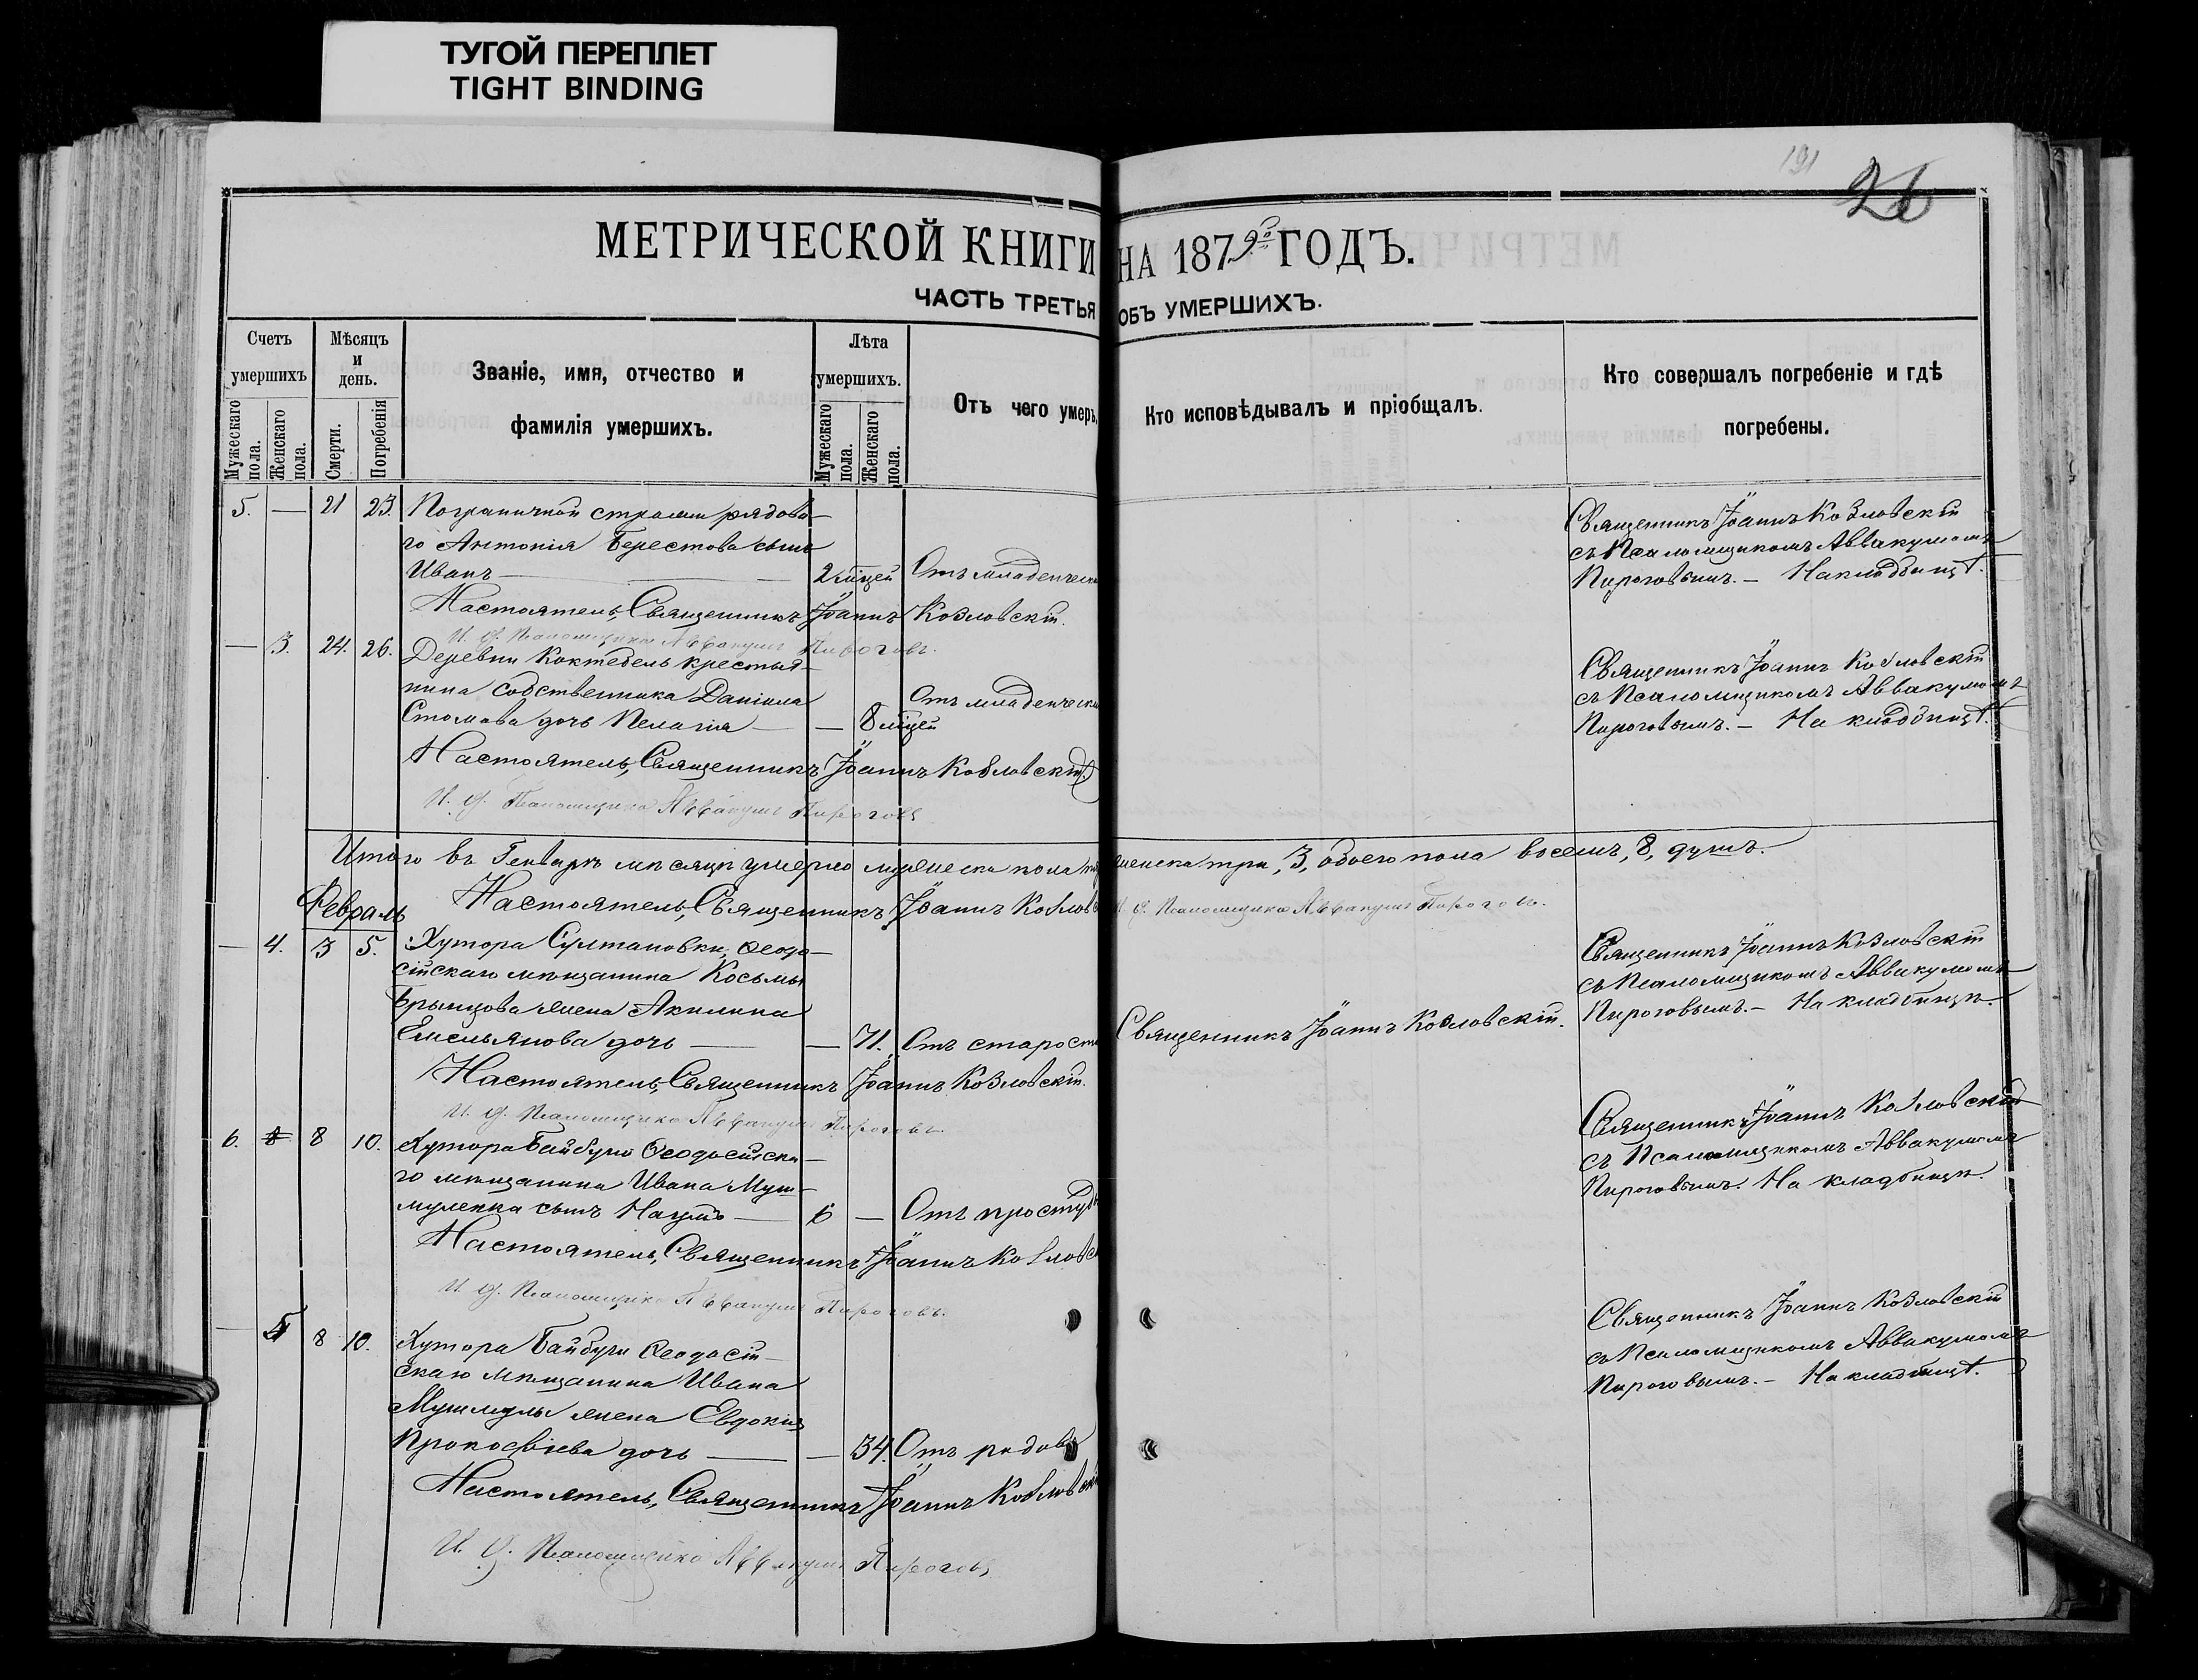 ТУГОЙ ПЕРЕПЛЕТ
TIGHT BINDING
191
26
МЕТРИЧЕСКОЙ КНИГИ НА 1879го ГОДЪ.
ЧАСТЬ ТРЕТЬЯ ОБЪ УМЕРШИХЪ.
Счетъ умершихъ
Мужескаго пола.
Женскаго пола.
Мѣсяцъ и день.
Смерти.
Погребенія
Званіе, имя, отчество и
фамилія умершихъ.
Лѣта умершихъ.
Мужескаго пола.
Женскаго пола.
Отъ чего умеръ.
Кто исповѣдывалъ и пріобщалъ.
Кто совершалъ погребеніе и гдѣ
погребены.
5. — 21 23. Пограничной стражи рядова-
го Антонія Берестова сынъ
Иванъ — 2 мцей Отъ младенческ
Священникъ Іоаннъ Козловскій
съ Псаломщикомъ Аввакумомъ
Пироговымъ. – На кладбищѣ.
Настоятель, Священникъ Іоаннъ Козловскій.
И. д. Псаломщика Аввакумъ Пироговъ.
— 3. 24. 26. Деревни Коктебель крестья-
нина собственника Даніила
Стомова дочь Пелагія — — 8 мцей Отъ младенческ
Священникъ Іоаннъ Козловскій
съ Псаломщикомъ Аввакумомъ
Пироговымъ. – На кладбищѣ.
Настоятель, Священникъ Іоаннъ Козловскій
И. д. Псаломщика Аввакумъ Пироговъ
Итого въ Генварѣ мѣсяцѣ умерло мужеска пола женска три, 3, обоего пола восемь, 8, душъ.
Февраль
Настоятель, Священникъ Іоаннъ Козловс И. д. Псаломщика Аввакумъ Пироговъ.
— 4. 3 5. Хутора Султановки, Ѳеодо-
сійскаго мѣщанина Косьмы
Брынцова жена Акилина
Емельянова дочь — — 71. Отъ старост Священникъ Іоаннъ Козловскій.
Священникъ Іоаннъ Козловскій
съ Псаломщикомъ Аввакумомъ
Пироговымъ. – На кладбищѣ.
Настоятель, Священникъ Іоаннъ Козловскій.
И. д. Псаломщика Аввакумъ Пироговъ.
6. 8 10. Хутора Байбуги Ѳеодосійска-
го мѣщанина Ивана Муш-
муленка сынъ Наумъ — 6 — Отъ простуд
Священникъ Іоаннъ Козловскій
съ Псаломщикомъ Аввакумомъ
Пироговымъ. На кладбищѣ.
Настоятель, Священникъ Іоаннъ Козловс
И. д. Псаломщика Аввакумъ Пироговъ.
— 5 8 10. Хутора Байбуги Ѳеодосій-
скаго мѣщанина Ивана
Мушмулы жена Евдокія
Прокофіева дочь — — 34. Отъ родовъ
Священникъ Іоаннъ Козловскій
съ Псаломщикомъ Аввакумомъ
Пироговымъ. – На кладбищѣ.
Настоятель, Священникъ Іоаннъ Козловскі
И. д. Псаломщика Аввакумъ Пироговъ